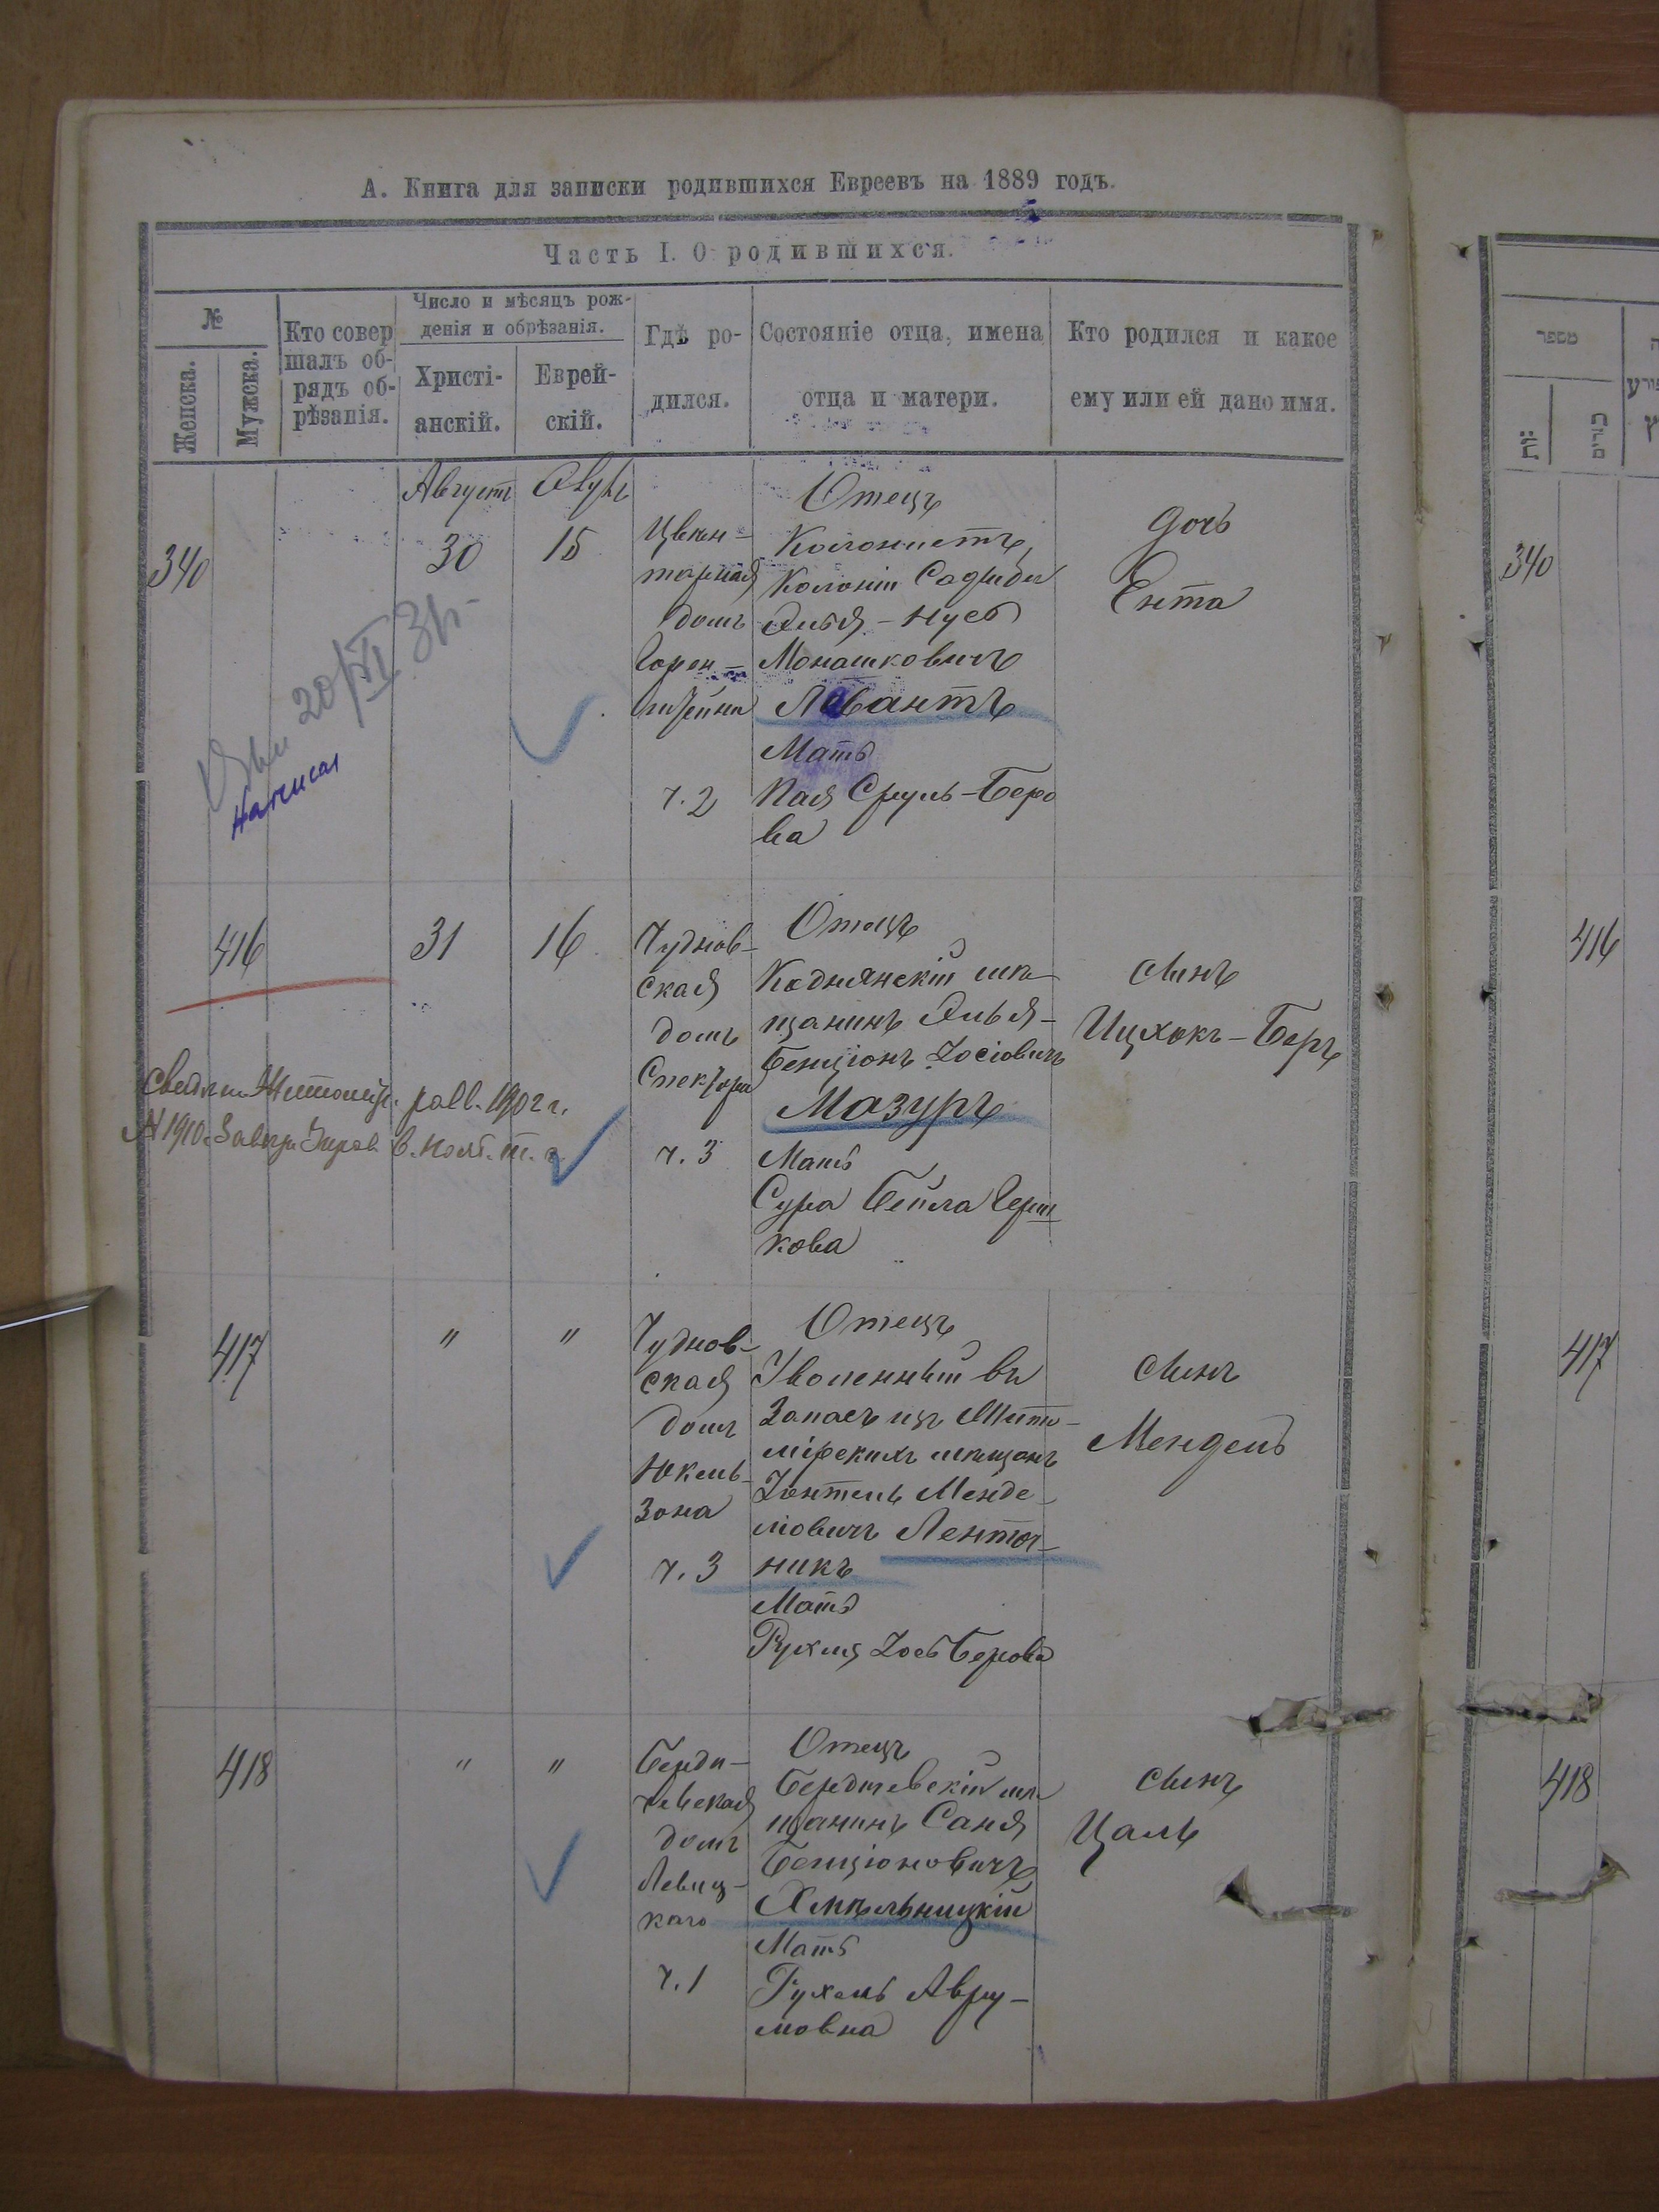 А. Книга для записки родившихся Евреевъ на 1889 годъ.
Часть I. О родившихся.
№
Женска.
Мужска.
Кто совер
шалъ об-
рядъ об-
рѣзанія.
Число и мѣсяцъ рож-
денія и обрѣзанія.
Христі-
анскій.
Еврей-
скій.
Гдѣ ро-
дился.
Состояніе отца, имена
отца и матери.
Кто родился и какое
ему или ей дано имя.
Августъ
340
30
15
домъ
ч. 2
Отецъ
Колонистъ
Колоніи
Эльія - Нусъ
Монашковичъ
Левантъ
Мать
Хая Сруль-Беро
ва
дочь
Ента
20/XI 31
Написал
416
31
16
Чуднов-
ская
домъ
Спектора
ч. 3
Отецъ
Коднянскій мѣ-
щанинъ Эльія-
Бенціонъ Іосіовичъ
Мазуръ
Мать
Сура Бейла Герш
кова
сынъ
Ицхокъ-Беръ
1902 г.
417
"
"
Чуднов-
ская
домъ
Юкель-
зона
ч. 3
Отецъ
Уволенный въ
Запасъ изъ Жито-
мірскихъ мѣщанъ
Іонтель Менде-
ловичъ Ленточ-
никъ
Мать
Рухля Іось Берова
сынъ
Мендель
418
"
"
Берди-
чевская
домъ
Левиц-
каго
ч. 1
Отецъ
Бердичевскій мѣ
щанинъ Саня
Бенціоновичъ
Хмѣльницкій
Мать
Рухель Авру-
мовна
сынъ
Цаль
מספר
340
416
417
418